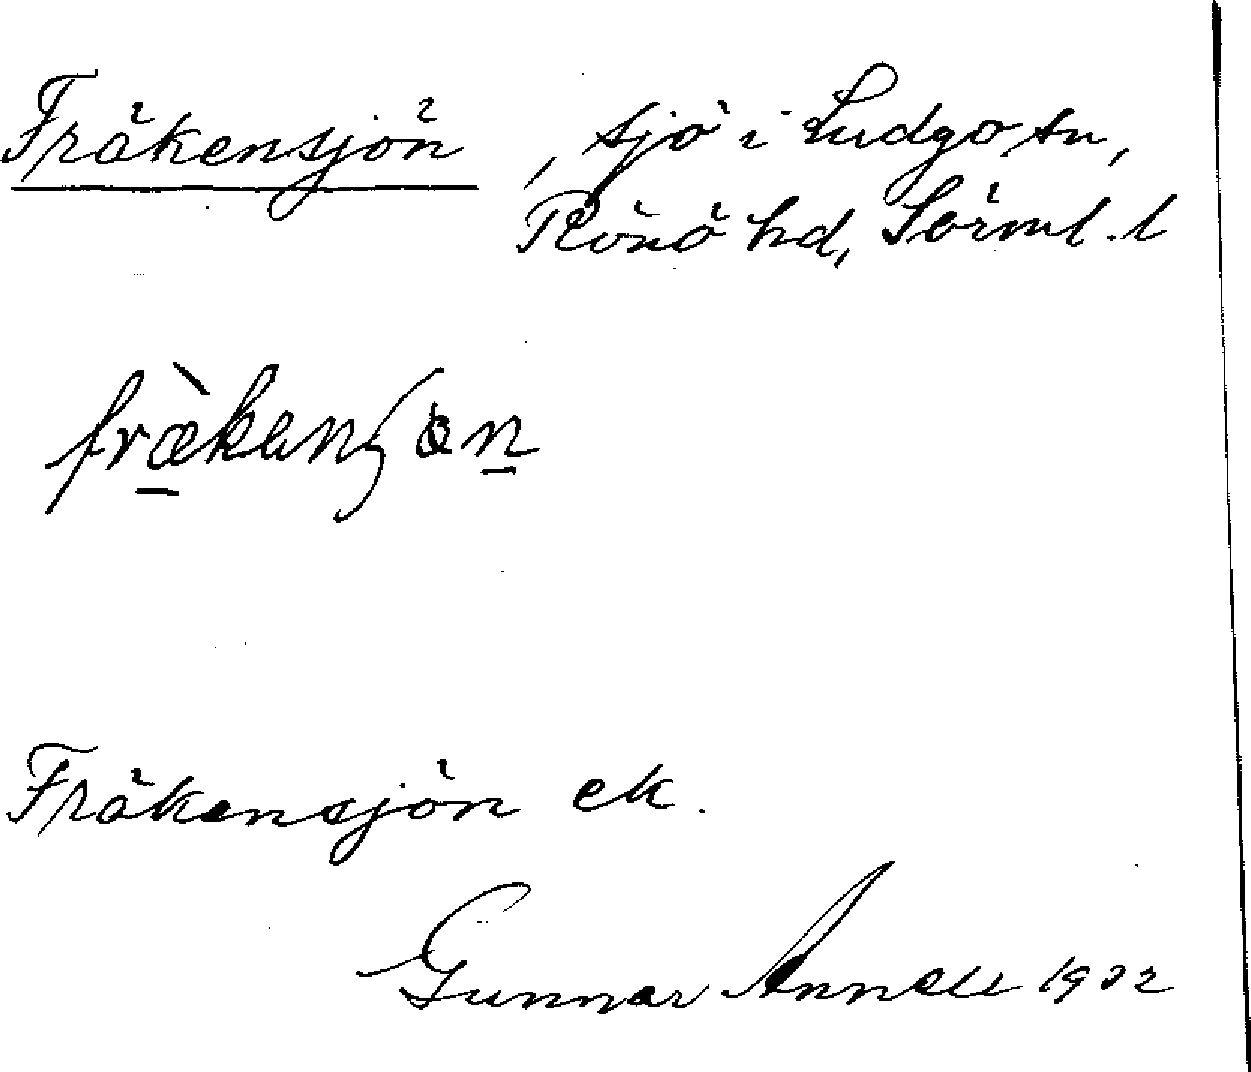 Fräkensjön, sjö i Ludgo sn,
Rönö hd, Sörml. l
fræ̀kenʃɵn
Fräkensjön ek.
Gunnar Annell 1932